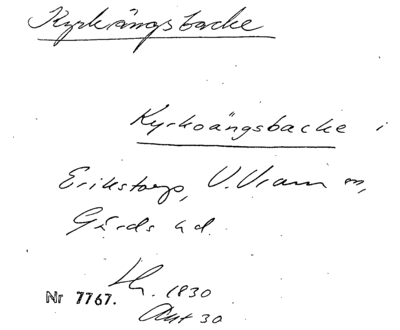 Kyrkängsbacke
Kyrkoängsbacke i
Erikstorp, V. Vram sn,
Gärds hd.
Lh. 1830
Nr 7767.
Akt 30